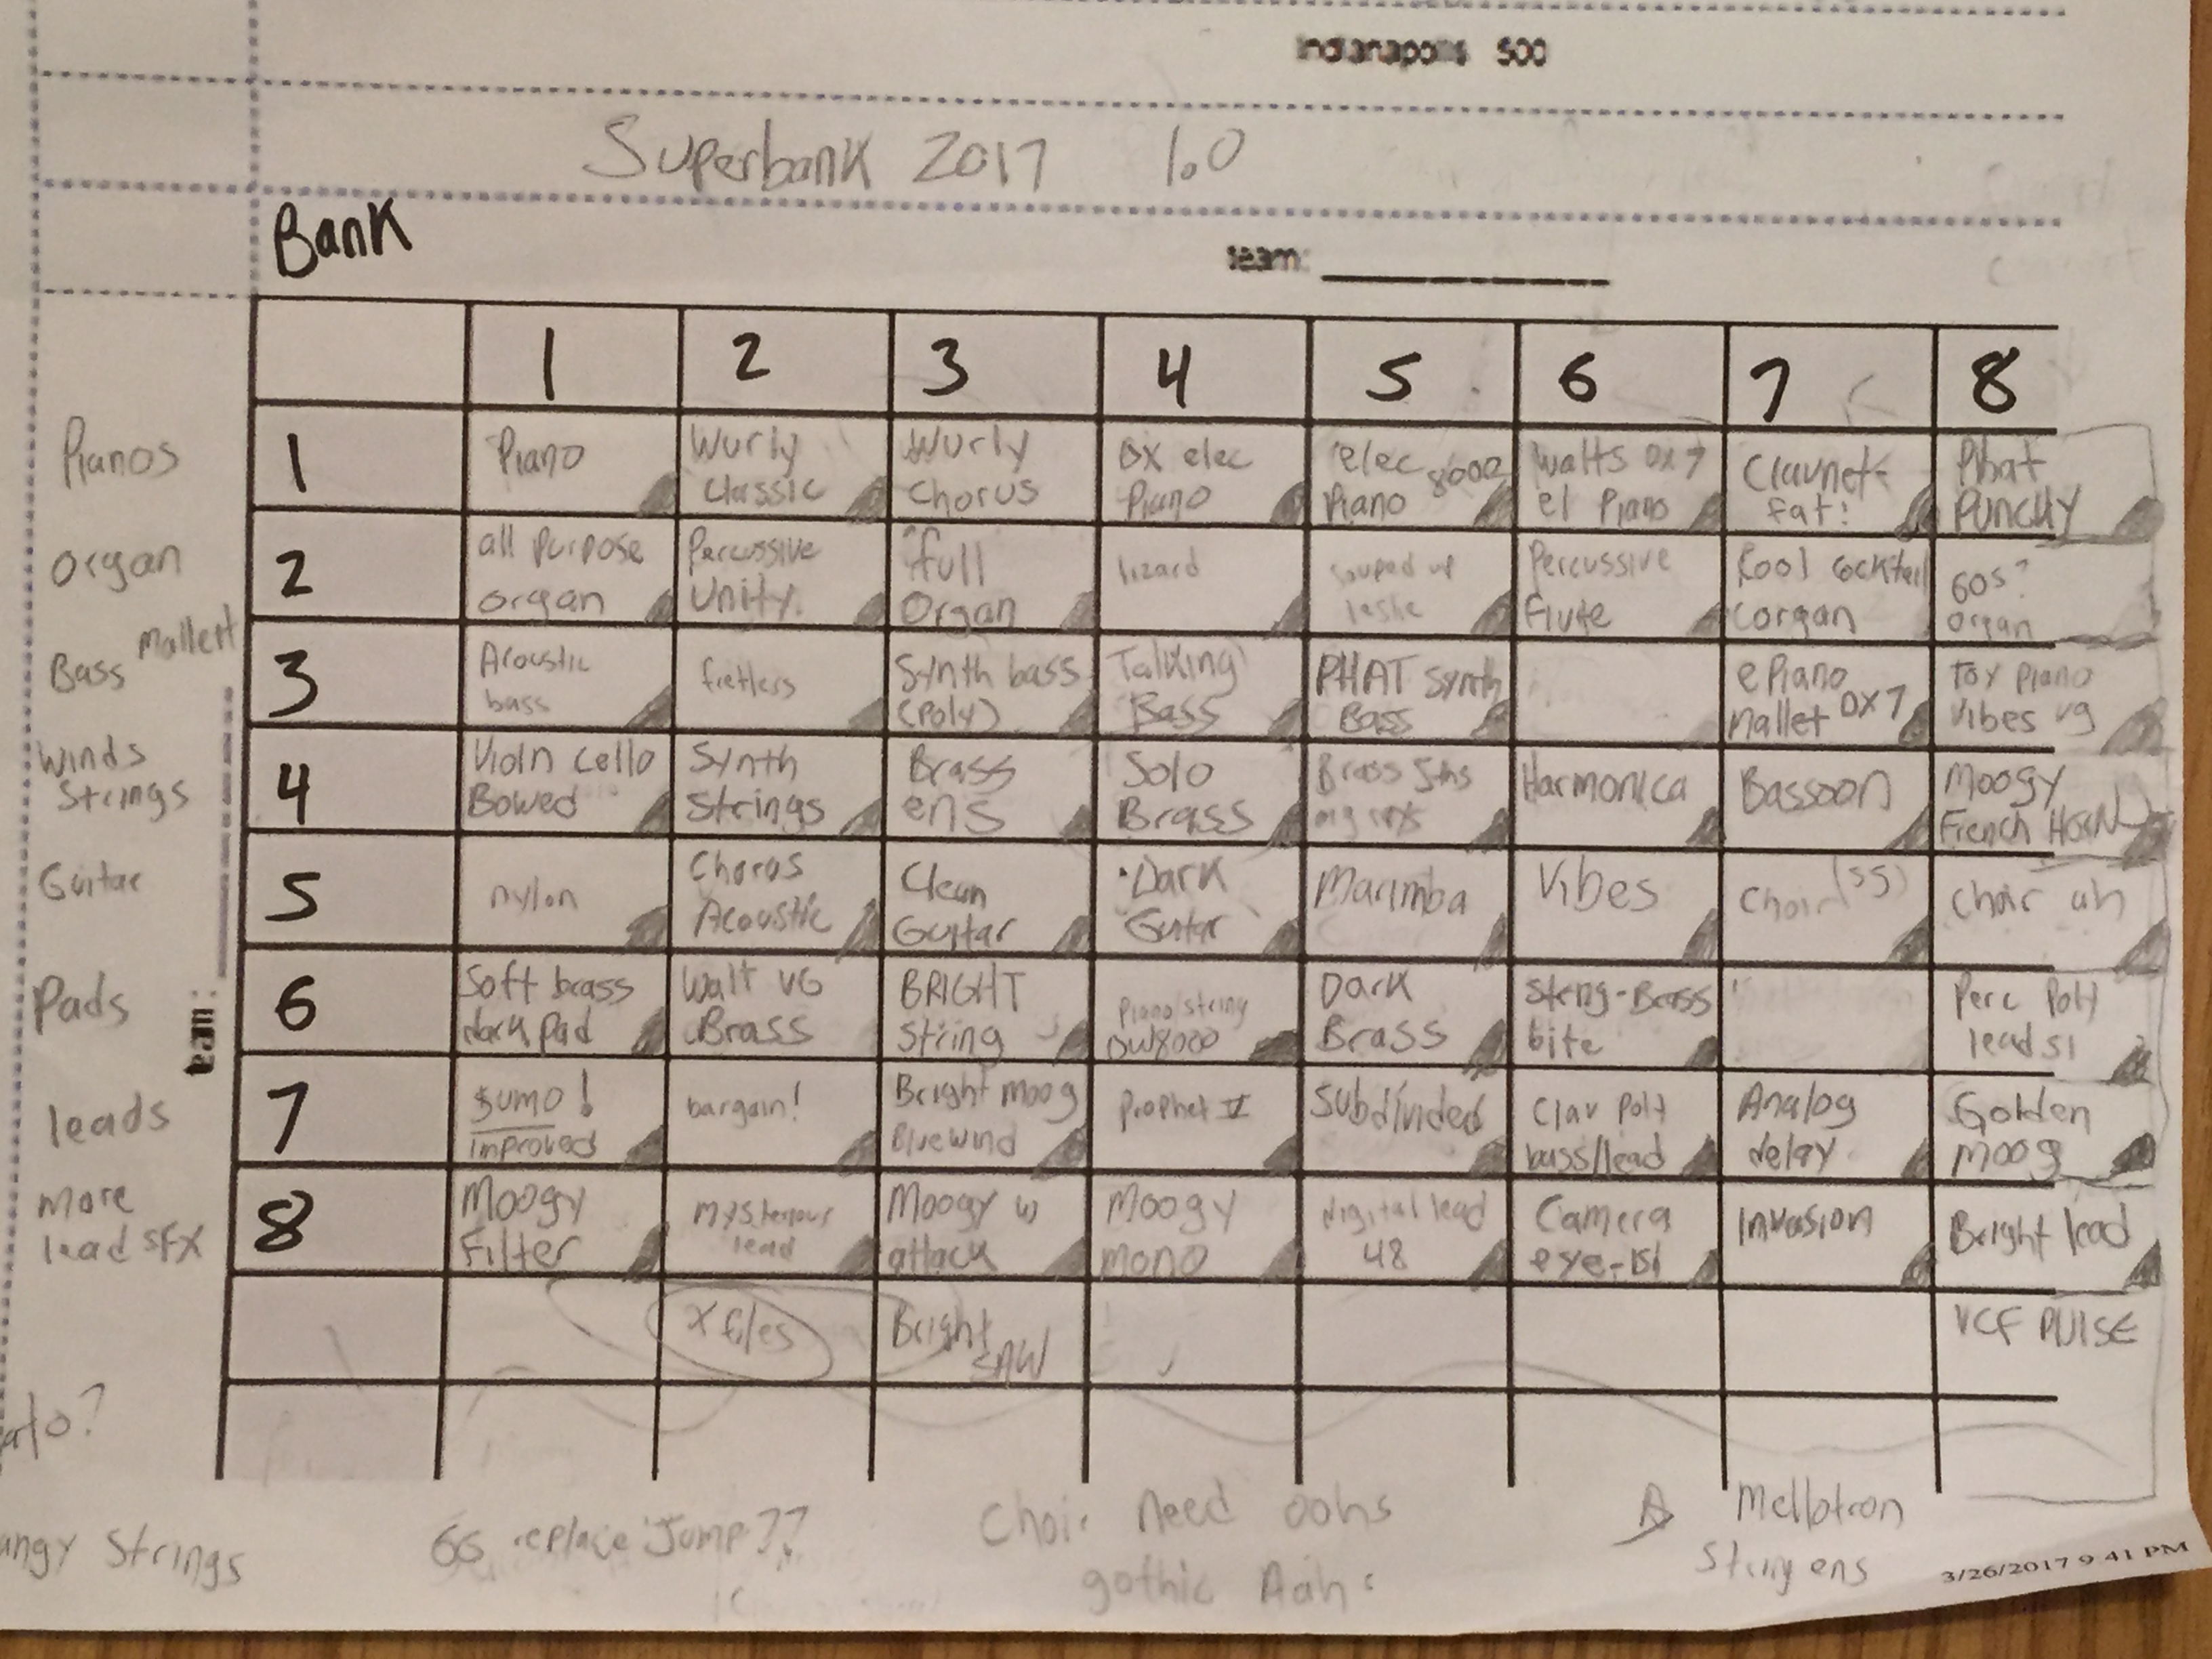 Indianapolis 500
Superbank 2017 1.0
Bank
team:
1 2 3 4 5 6 7 8
Pianos 1 Piano Wurly Classic Wurly Chorus DX elec Piano elec Piano 8000 Walts DX7 el Piano Clavnet fat! Phat PUNCHY
organ 2 all purpose organ Percussive Unity full Organ lizard souped up leslie Percussive Flute Kool cocktail organ 60s? organ
Bass Mallett 3 Acoustic bass fretless Synth bass (Poly) Talking Bass PHAT Synth Bass ePiano Mallet DX7 Toy piano vibes vg
Winds Strings 4 Violn Cello Bowed Synth Strings Brass ens Solo Brass Brass 5ths Harmonica Bassoon Moogy French HORN
Guitar 5 nylon Chorus Acoustic Clean Guitar Dark Guitar Marimba Vibes Choir (SS) Choir ah
Pads 6 Soft brass dark pad Walt VG Brass BRIGHT String Piano/string DW8000 Dark Brass String-Brass bite Perc Poly lead S1
team:
leads 7 Sumo! improved bargain! Bright moog Bluewind Prophet V Subdivided Clav Poly bass/lead Analog delay Golden moog
More lead SFX 8 Moogy Filter mysterious lead Moogy w/ attack Moogy mono digital lead 48 Camera eye-ish Invasion Bright lead
X files Bright SAW VCF PULSE
angy Strings
66 replace Jump??
Choir Need oohs
gothic Aah
Mellotron
String ens
3/26/2017 9:41 PM